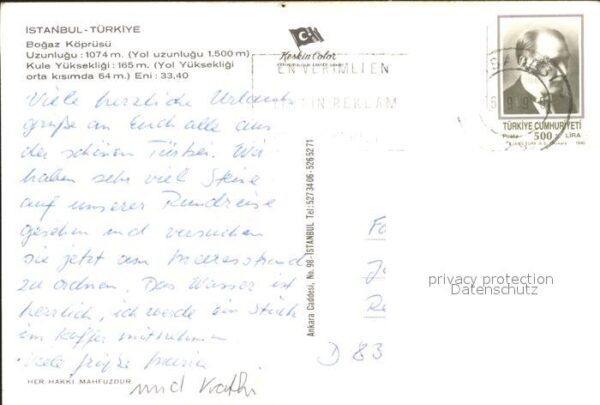 İSTANBUL - TÜRKİYE
Boğaz Köprüsü
Uzunluğu : 1074 m. (Yol uzunluğu 1.500 m)
Kule Yüksekliği : 165 m. (Yol Yüksekliği
orta kısımda 64 m.) Eni : 33,40
Viele herzliche Urlaubs-
grüße an Euch alle aus
der schönen Türkei. Wir
haben sehr viel Steine
auf unserer Rundreise
gesehen und versuchen
sie jetzt am Meeresstrand
zu ordnen. Das Wasser ist
herrlich, ich werde ein Stück
im Koffer mitnehmen.
Viele Grüße Maria
und Kathi
HER HAKKI MAHFUZDUR
Keskin Color
EN VERİMLİ EN
REKLAM
TÜRKİYE CUMHURİYETİ
Posta 500 LİRA
1990
Ankara Caddesi, No. 98 - İSTANBUL Tel: 5273406 - 5265271
privacy protection
Datenschutz
D 83